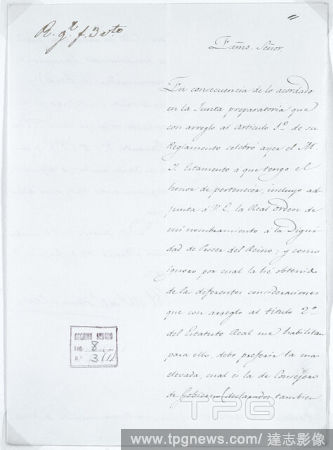 Exmo. Señor
En consecuencia de lo acordado
en la Junta preparatoria que
con arreglo al articulo 1º de su
Reglamento celebró ayer el
Estamento a que tengo el
honor de pertenecer, incluyo ad-
junta a V.E. la Real orden de
mi nombramiento a la Digni-
dad de Procer del Reino; y como
ignoro por cual la he obtenido
de la diferentes consideraciones
que con arreglo al titulo 2º
del Estatuto Real me habilitan
para ello, debo preferir la mas
elevada cual es la de Consejero
de tambien
8
TPG
www.tpgnews.com/達志影像